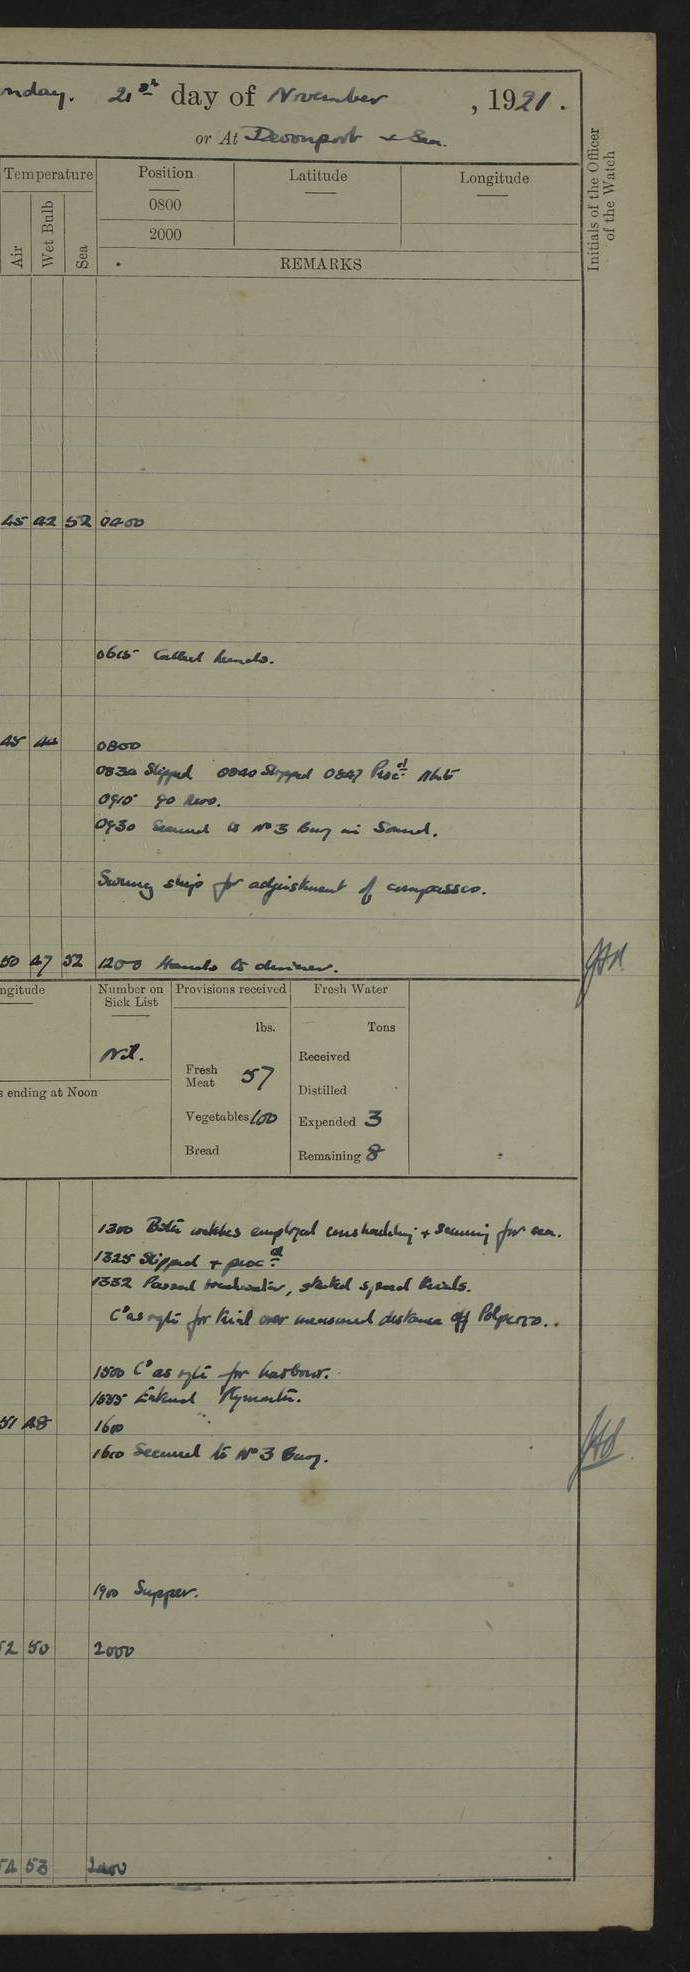 nday. 21st day of November, 1921.
or At Devonport & Sea.
Temperature
Position
Latitude
Longitude
Initials of the Officer of the Watch
0800
2000
Air
Wet Bulb
Sea
REMARKS
45 42 52 0400
0615 Called hands.
45 44 0800
0830 Slipped 0840 Stopped 0847 Procd
0915 90 revs.
0930 Secured to No 3 Buoy in Sound.
Swung ship for adjustment of compasses.
50 47 52 1200 Hands to dinner.
ngitude
Number on Sick List
Provisions received
Fresh Water
lbs.
Tons
Nil.
Received
Fresh Meat 57
s ending at Noon
Distilled
Vegetables 100
Expended 3
Bread
Remaining 8
1300 Both watches employed & securing for sea.
1325 Slipped & procd
1332 Passed breakwater, started speed trials.
Co as reqte for trial over measured distance off Polperro.
1500 Co as reqte for harbour.
1555 Entered Plymouth.
51 48 1600
1610 Secured to No 3 Buoy.
1900 Supper.
52 50 2000
54 53 2400